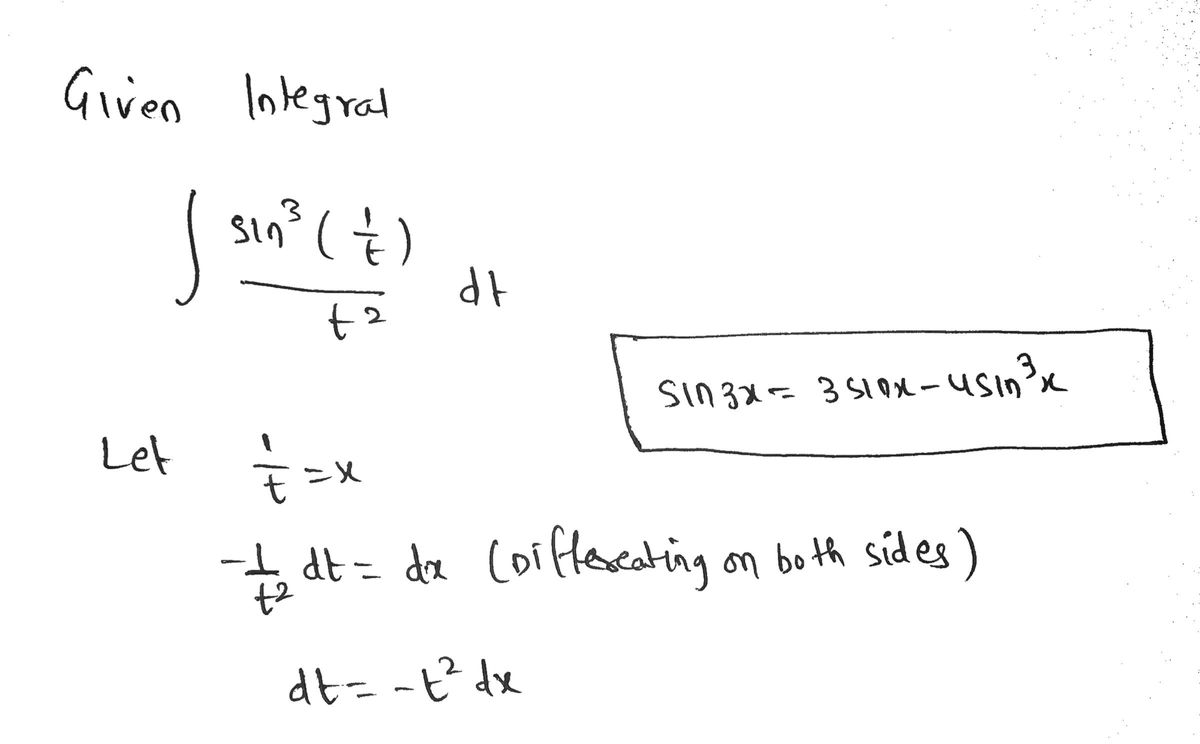 Given Integral
∫ sin³(1/t) / t² dt
sin3x = 3sinx - 4sin³x
Let 1/t = x
-1/t² dt = dx (Differeating on both sides)
dt = -t² dx